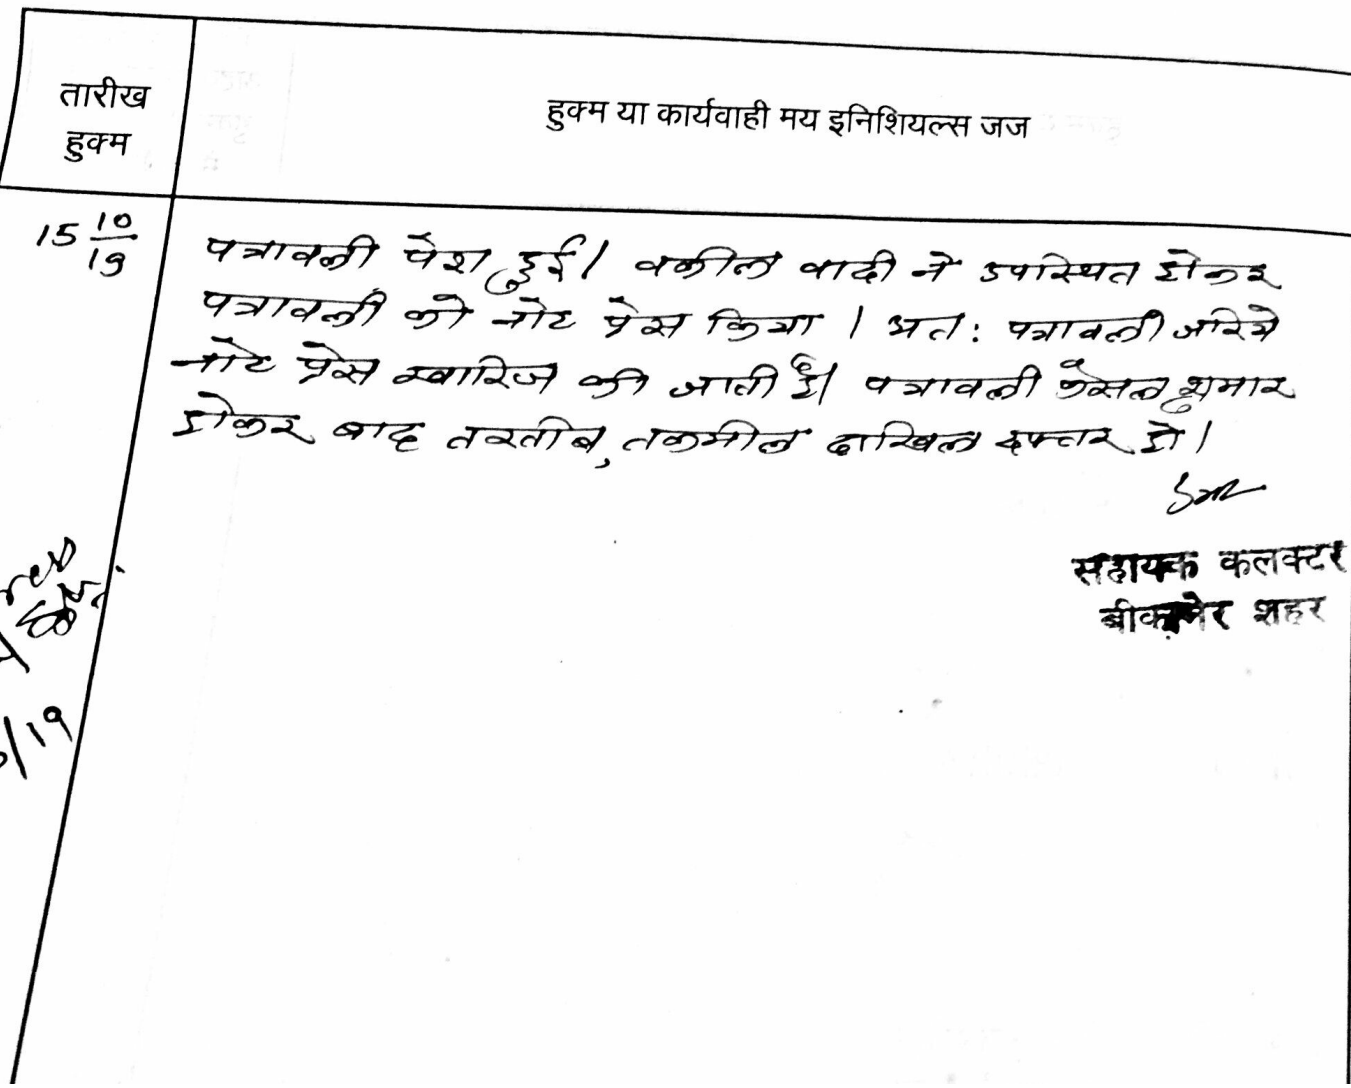 तारीख
हुक्म
हुक्म या कार्यवाही मय इनिशियल्स जज
15 10/19
पत्रावली पेश हुई। वकील वादी ने उपस्थित होकर
पत्रावली को नोट प्रेस किया। अतः पत्रावली जरिये
नोट प्रेस खारिज की जाती है। पत्रावली फैसल शुमार
होकर बाद तरतीब, तकमील दाखिल दफ्तर हो।
सहायक कलक्टर
बीकानेर शहर
/19